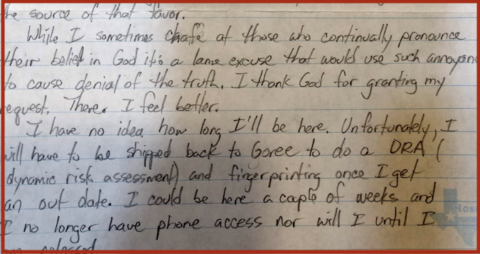 the source of that favor.
While I sometimes chafe at those who continually pronounce
their belief in God it's a lame excuse that would use such annoyance
to cause denial of the truth. I thank God for granting my
request. There. I feel better.
I have no idea how long I'll be here. Unfortunately, I
will have to be shipped back to Goree to do a DRA (
dynamic risk assessment) and fingerprinting once I get
an out date. I could be here a caple of weeks and
I no longer have phone access nor will I until I